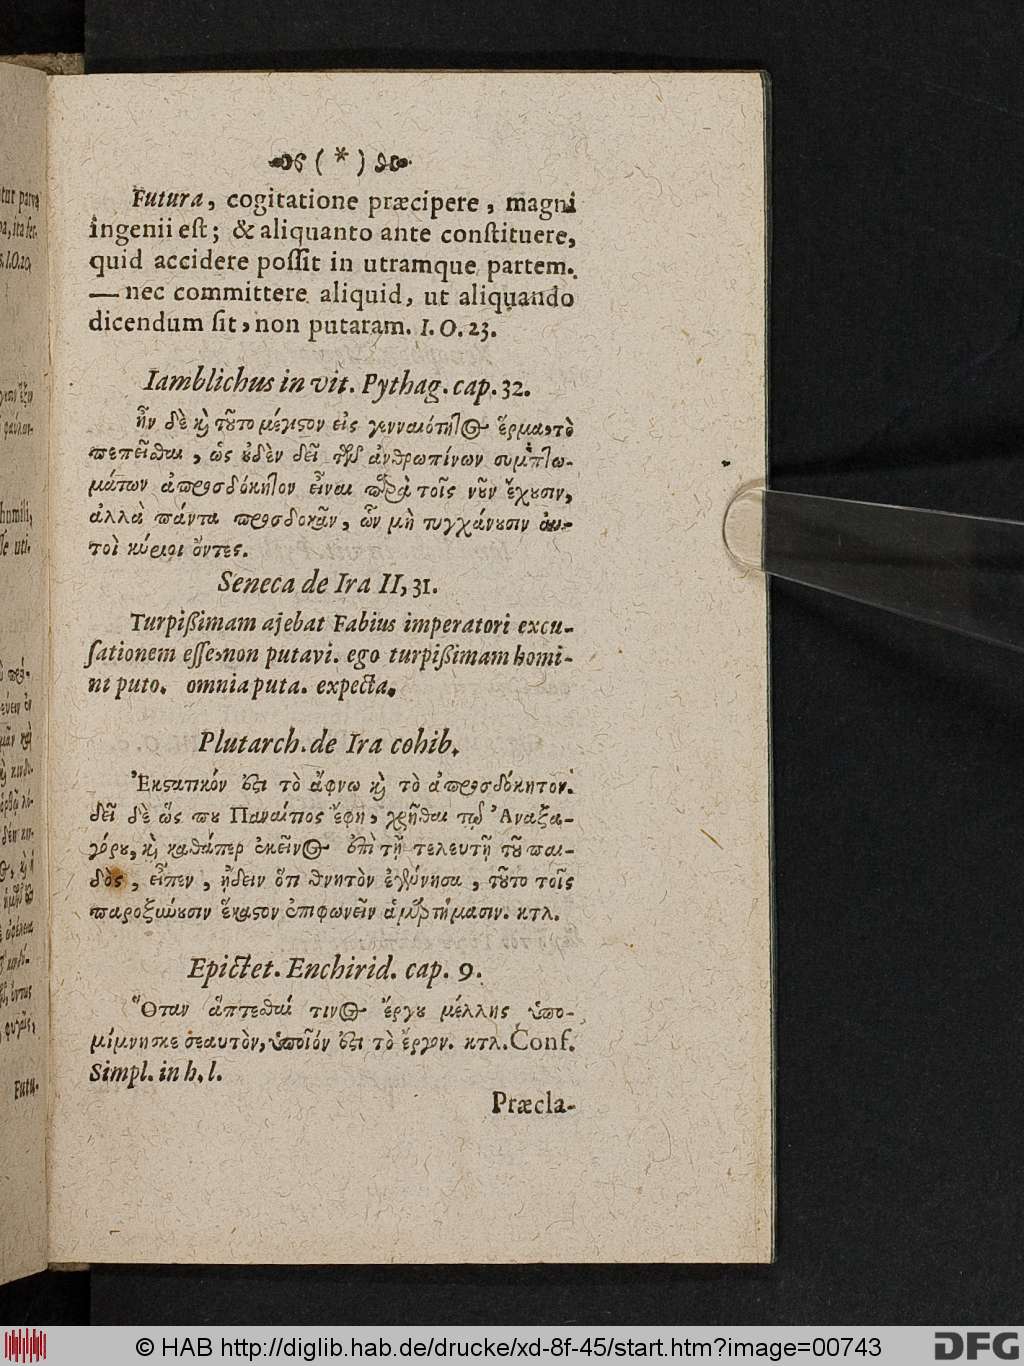 ( * )
Futura, cogitatione præcipere, magni
ingenii est; & aliquanto ante constituere,
quid accidere possit in utramque partem.
— nec committere aliquid, ut aliquando
dicendum sit, non putaram. I. O. 23.
Iamblichus in vit. Pythag. cap. 32.
ἦν δὲ καὶ τοῦτο μέγιστον εἰς γενναιότητος ἕρμα, τὸ
πεπεῖσθαι, ὡς οὐδὲν δεῖ τῶν ἀνθρωπίνων συμπτω-
μάτων ἀπροσδόκητον εἶναι παρὰ τοῖς νοῦν ἔχουσιν,
ἀλλὰ πάντα προσδοκᾶν, ὧν μὴ τυγχάνουσιν αὐ-
τοὶ κύριοι ὄντες.
Seneca de Ira II, 31.
Turpißimam ajebat Fabius imperatori excu-
sationem esse, non putavi. ego turpißimam homi-
ni puto. omnia puta. expecta.
Plutarch. de Ira cohib.
Ἐκστατικόν ἐστι τὸ ἄφνω καὶ τὸ ἀπροσδόκητον.
δεῖ δὲ ὥς που Παναίτιος ἔφη, χρῆσθαι τῷ Ἀναξα-
γόρου, καὶ καθάπερ ἐκεῖνος ἐπὶ τῇ τελευτῇ τοῦ παι-
δὸς, εἶπεν, ᾔδειν ὅτι θνητὸν ἐγέννησα, τοῦτο τοῖς
παροξύνουσιν ἕκαστον ἐπιφωνεῖν ἁμαρτήμασιν. κτλ.
Epictet. Enchirid. cap. 9.
Ὅταν ἅπτεσθαί τινος ἔργου μέλλῃς ὑπο-
μίμνησκε σεαυτὸν, ὁποῖόν ἐστι τὸ ἔργον. κτλ. Conf.
Simpl. in h. l.
Præcla-
Futu-
© HAB http://diglib.hab.de/drucke/xd-8f-45/start.htm?image=00743
DFG